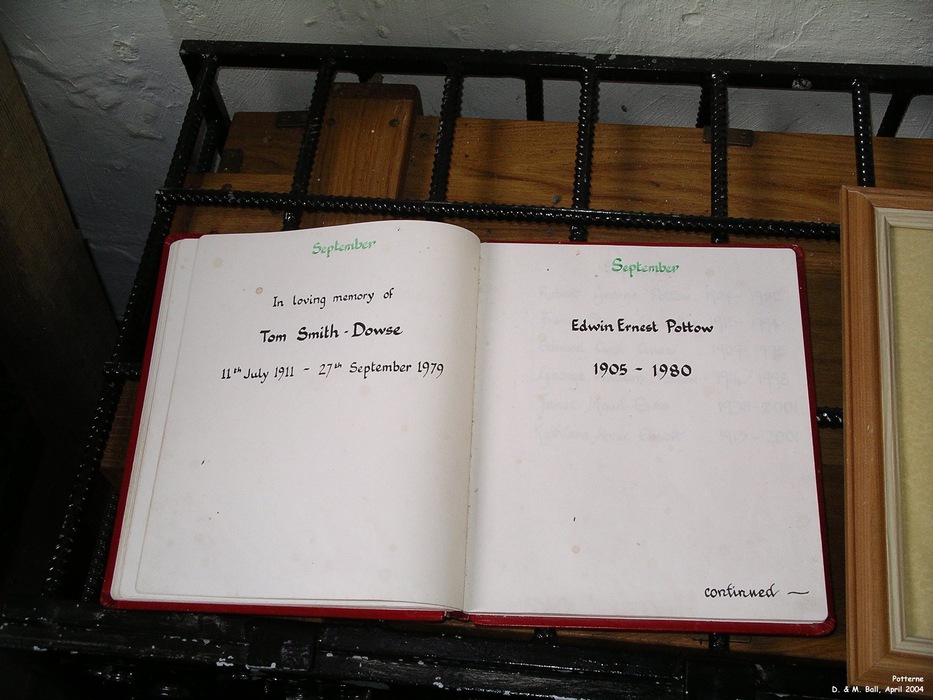 September
In loving memory of
Tom Smith - Dowse
11th July 1911 - 27th September 1979
September
Edwin Ernest Pottow
1905 - 1980
continued —
Potterne
D. & M. Ball, April 2004